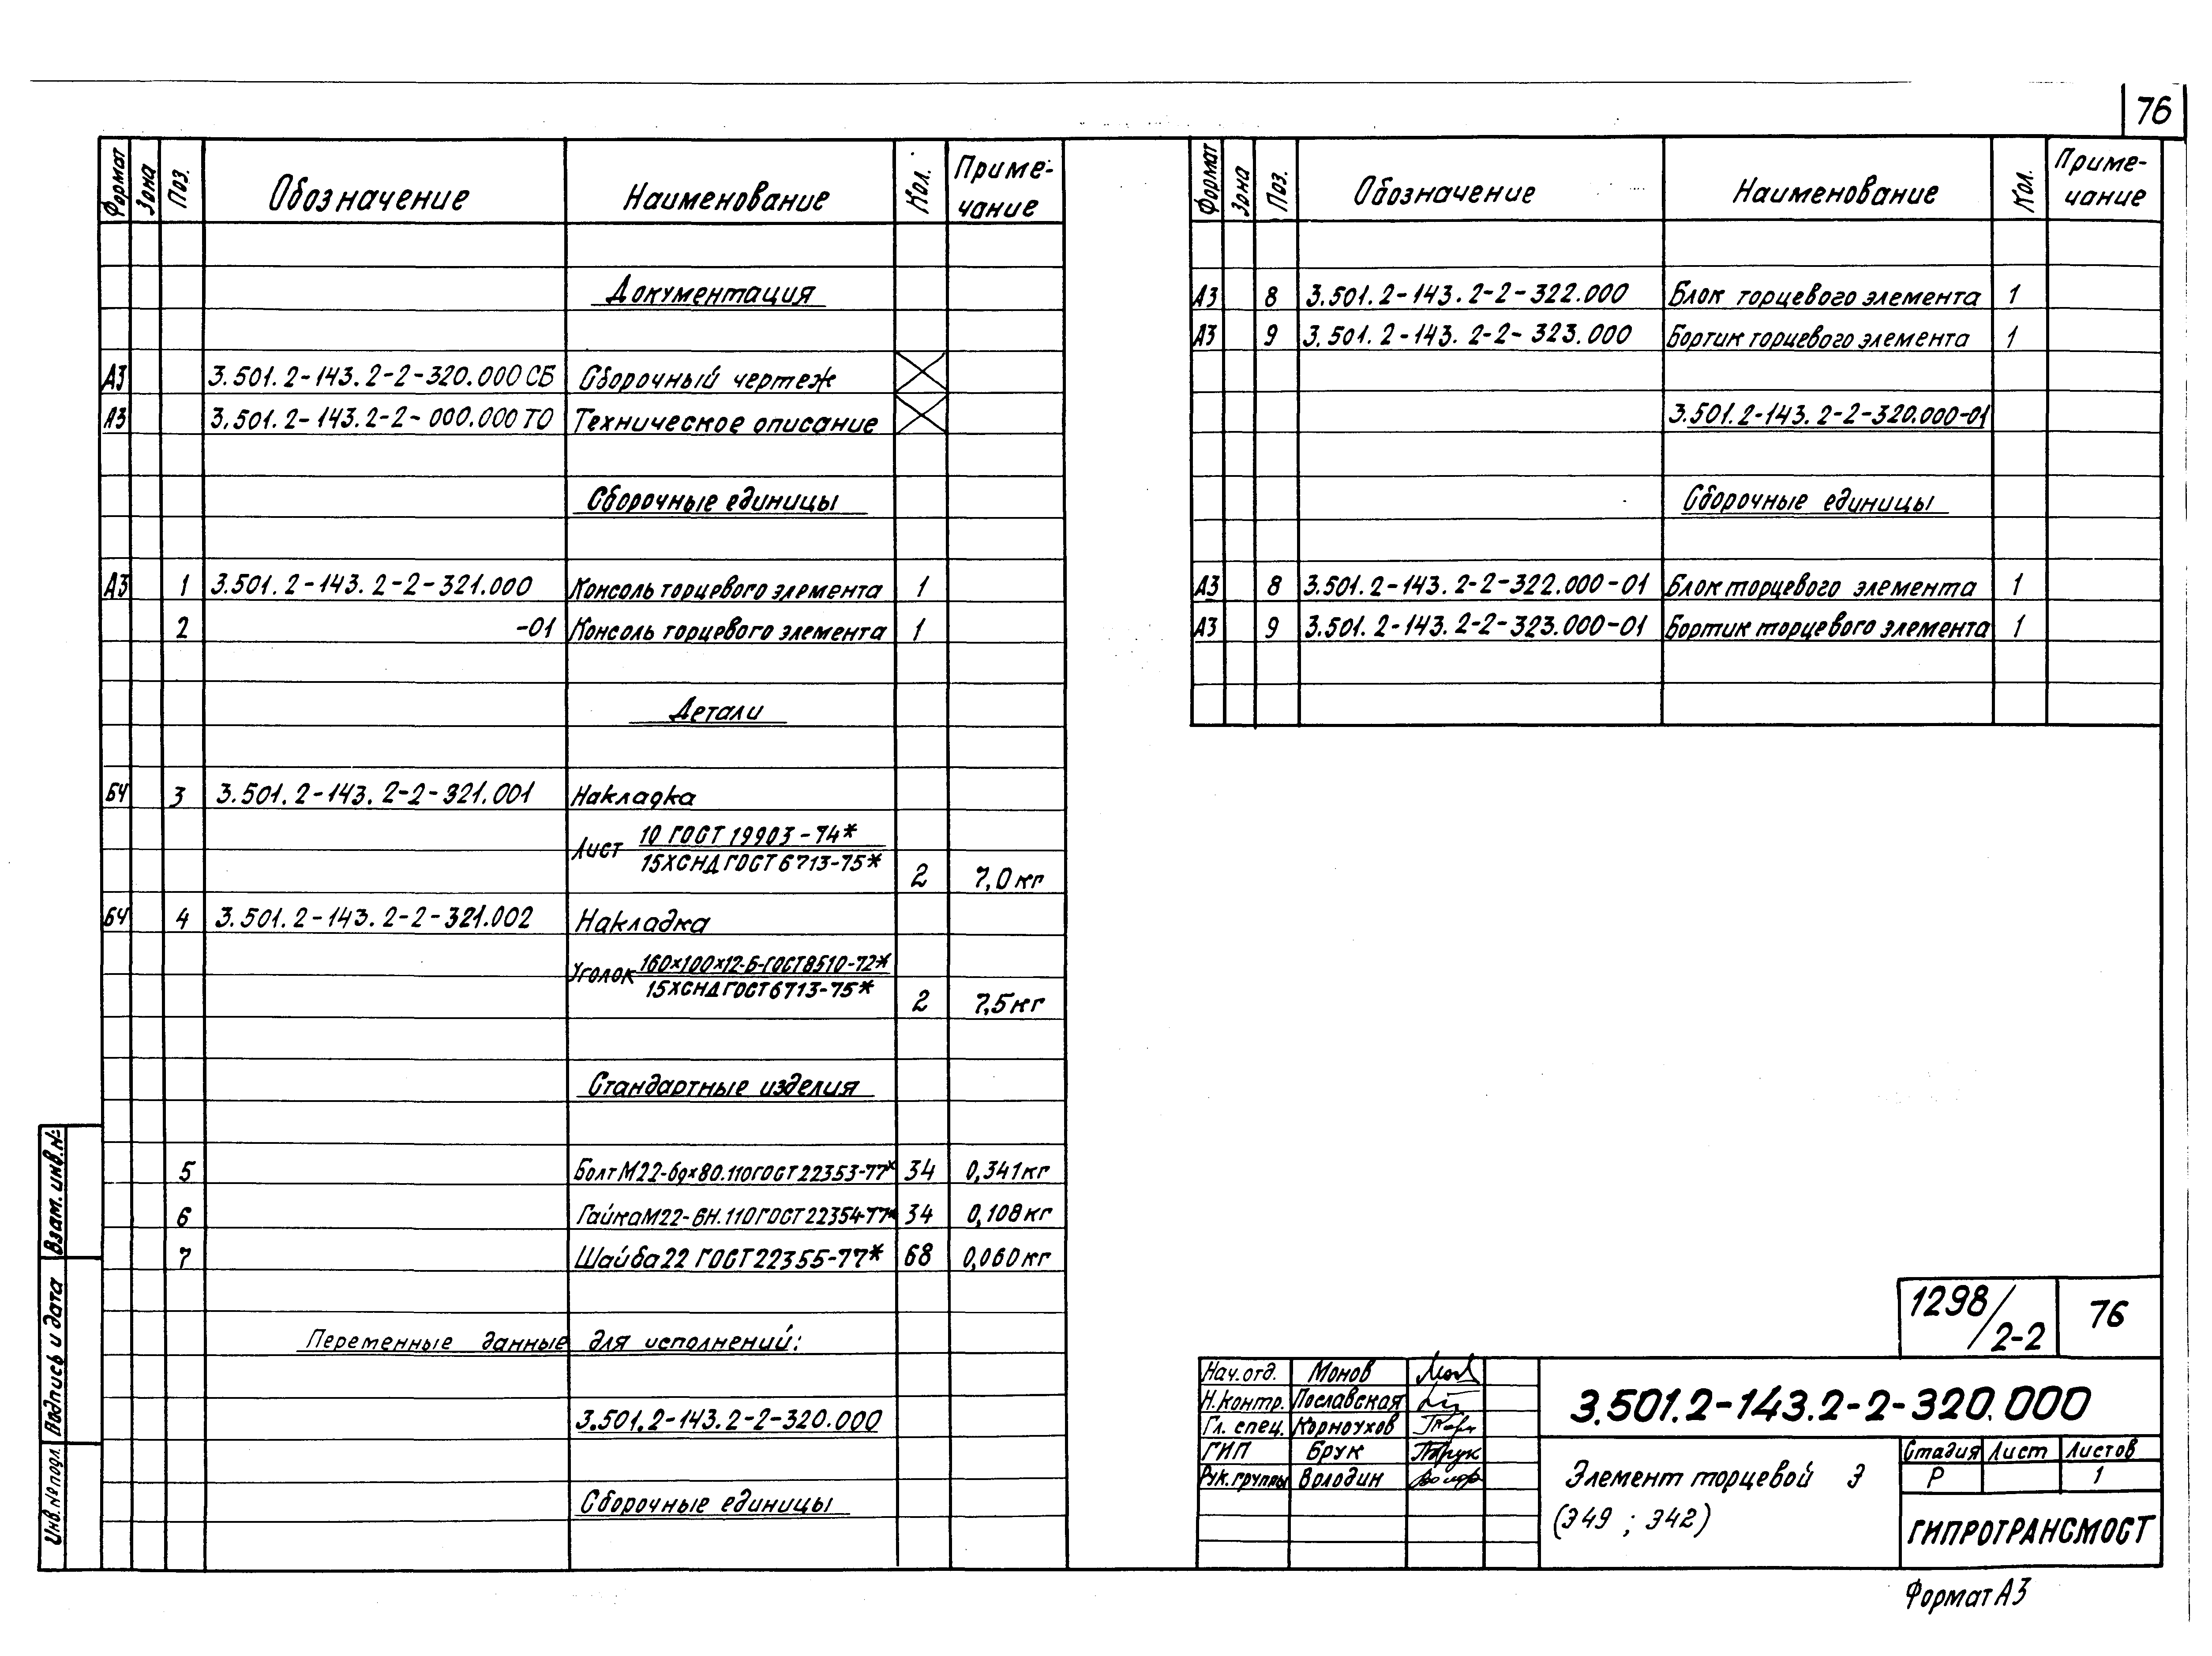 76
Формат Зона Поз. Обозначение Наименование Кол. Приме-
чание
Документация
А3 3.501.2-143.2-2-320.000 СБ Сборочный чертеж
А3 3.501.2-143.2-2-000.000 ТО Техническое описание
Сборочные единицы
А3 1 3.501.2-143.2-2-321.000 Консоль торцевого элемента 1
2 -01 Консоль торцевого элемента 1
Детали
БЧ 3 3.501.2-143.2-2-321.001 Накладка
Лист 10 ГОСТ 19903-74*
15ХСНД ГОСТ 6713-75* 2 7,0 кг
БЧ 4 3.501.2-143.2-2-321.002 Накладка
Уголок 160×100×12-Б-ГОСТ 8510-72*
15ХСНД ГОСТ 6713-75* 2 7,5 кг
Стандартные изделия
5 Болт М22-6g×80.110 ГОСТ 22353-77* 34 0,341 кг
6 Гайка М22-6Н.110 ГОСТ 22354-77* 34 0,108 кг
7 Шайба 22 ГОСТ 22355-77* 68 0,060 кг
Переменные данные для исполнений:
3.501.2-143.2-2-320.000
Сборочные единицы
Формат Зона Поз. Обозначение Наименование Кол. Приме-
чание
А3 8 3.501.2-143.2-2-322.000 Блок торцевого элемента 1
А3 9 3.501.2-143.2-2-323.000 Бортик торцевого элемента 1
3.501.2-143.2-2-320.000-01
Сборочные единицы
А3 8 3.501.2-143.2-2-322.000-01 Блок торцевого элемента 1
А3 9 3.501.2-143.2-2-323.000-01 Бортик торцевого элемента 1
Взам. инв.№
Подпись и дата
Инв.№ подл.
1298/2-2 76
Нач.отд. Монов
Н.контр. Пославская
Гл. спец. Корноухов
ГИП Брук
Рук.группы Володин
3.501.2-143.2-2-320.000
Элемент торцевой Э
(Э49 ; Э42)
Стадия Лист Листов
Р 1
ГИПРОТРАНСМОСТ
Формат А3